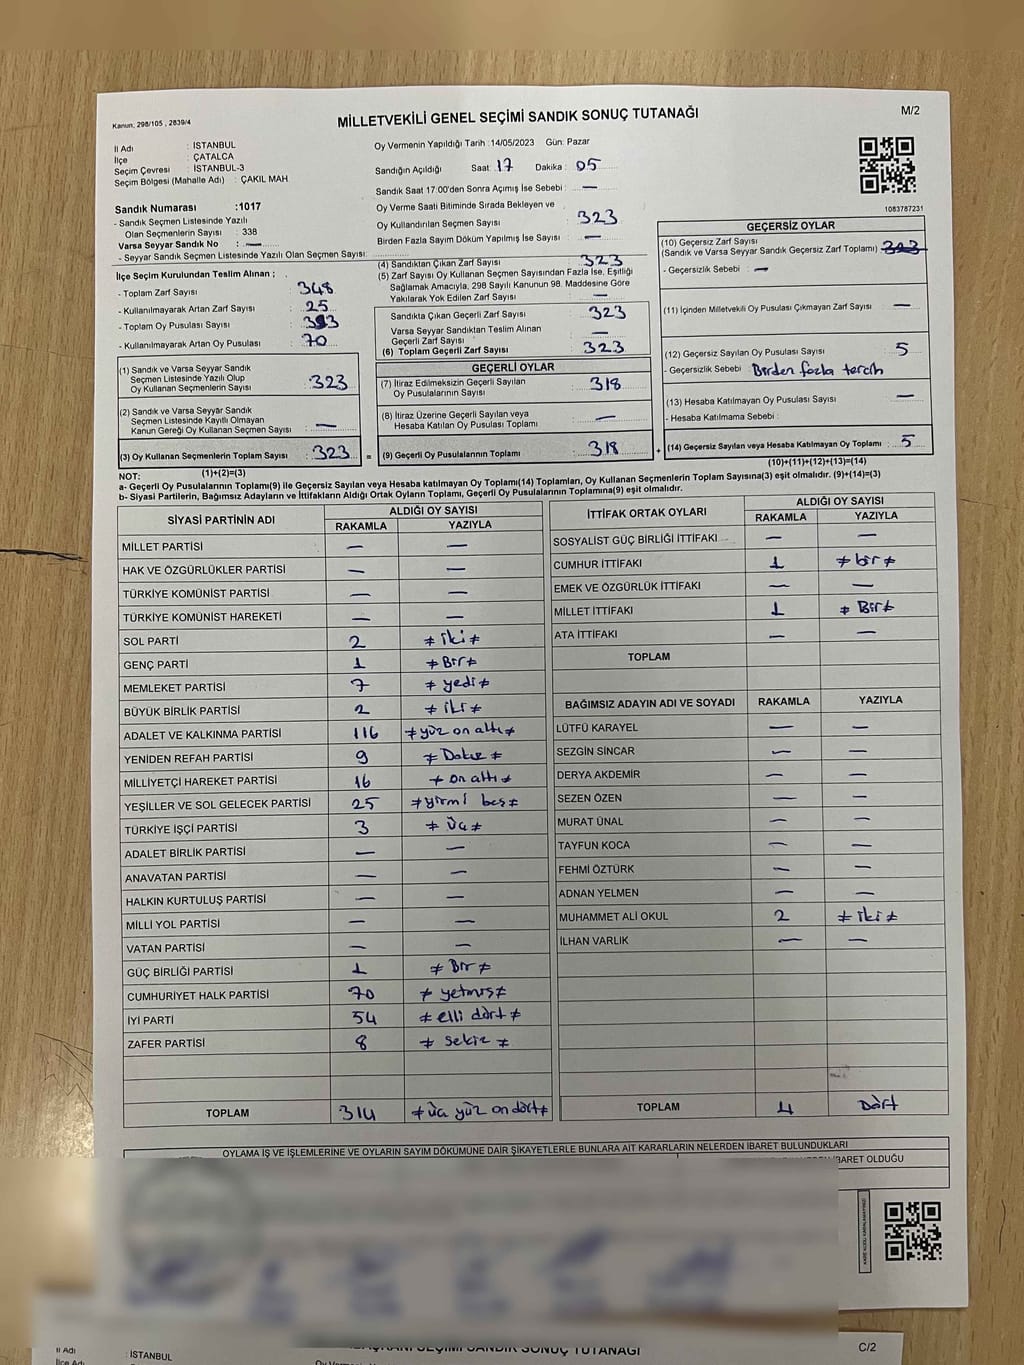 Kanun, 298/105 , 2839/4
MİLLETVEKİLİ GENEL SEÇİMİ SANDIK SONUÇ TUTANAĞI
M/2
İl Adı : İSTANBUL
İlçe : ÇATALCA
Seçim Çevresi : İSTANBUL-3
Seçim Bölgesi (Mahalle Adı) : ÇAKIL MAH
Oy Vermenin Yapıldığı Tarih :14/05/2023 Gün: Pazar
Sandığın Açıldığı Saat : 17 Dakika : 05
Sandık Saat 17:00'den Sonra Açımış İse Sebebi : —
Sandık Numarası :1017
- Sandık Seçmen Listesinde Yazılı
Olan Seçmenlerin Sayısı : 338
Varsa Seyyar Sandık No : —
- Seyyar Sandık Seçmen Listesinde Yazılı Olan Seçmen Sayısı:
Oy Verme Saati Bitiminde Sırada Bekleyen ve
Oy Kullandırılan Seçmen Sayısı : 323
Birden Fazla Sayım Döküm Yapılmış İse Sayısı : —
1083787231
İlçe Seçim Kurulundan Teslim Alınan ;
- Toplam Zarf Sayısı : 348
- Kullanılmayarak Artan Zarf Sayısı : 25
- Toplam Oy Pusulası Sayısı : 393
- Kullanılmayarak Artan Oy Pusulası : 70
(1) Sandık ve Varsa Seyyar Sandık
Seçmen Listesinde Yazılı Olup
Oy Kullanan Seçmenlerin Sayısı : 323
(2) Sandık ve Varsa Seyyar Sandık
Seçmen Listesinde Kayıtlı Olmayan
Kanun Gereği Oy Kullanan Seçmen Sayısı : —
(3) Oy Kullanan Seçmenlerin Toplam Sayısı : 323
(1)+(2)=(3)
(4) Sandıktan Çıkan Zarf Sayısı : 323
(5) Zarf Sayısı Oy Kullanan Seçmen Sayısından Fazla İse, Eşitliği
Sağlamak Amacıyla, 298 Sayılı Kanunun 98. Maddesine Göre
Yakılarak Yok Edilen Zarf Sayısı : —
Sandıkta Çıkan Geçerli Zarf Sayısı : 323
Varsa Seyyar Sandıktan Teslim Alınan
Geçerli Zarf Sayısı : —
(6) Toplam Geçerli Zarf Sayısı : 323
GEÇERLİ OYLAR
(7) İtiraz Edilmeksizin Geçerli Sayılan
Oy Pusulalarının Sayısı : 318
(8) İtiraz Üzerine Geçerli Sayılan veya
Hesaba Katılan Oy Pusulası Toplamı : —
= (9) Geçerli Oy Pusulalarının Toplamı : 318
GEÇERSİZ OYLAR
(10) Geçersiz Zarf Sayısı
(Sandık ve Varsa Seyyar Sandık Geçersiz Zarf Toplamı) : 323
- Geçersizlik Sebebi : —
(11) İçinden Milletvekili Oy Pusulası Çıkmayan Zarf Sayısı : —
(12) Geçersiz Sayılan Oy Pusulası Sayısı : 5
- Geçersizlik Sebebi : Birden fazla tercih
(13) Hesaba Katılmayan Oy Pusulası Sayısı : —
- Hesaba Katılmama Sebebi :
+ (14) Geçersiz Sayılan veya Hesaba Katılmayan Oy Toplamı : 5
(10)+(11)+(12)+(13)=(14)
NOT:
a- Geçerli Oy Pusulalarının Toplamı(9) ile Geçersiz Sayılan veya Hesaba katılmayan Oy Toplamı(14) Toplamları, Oy Kullanan Seçmenlerin Toplam Sayısına(3) eşit olmalıdır. (9)+(14)=(3)
b- Siyasi Partilerin, Bağımsız Adayların ve İttifakların Aldığı Ortak Oyların Toplamı, Geçerli Oy Pusulalarının Toplamına(9) eşit olmalıdır.
SİYASİ PARTİNİN ADI ALDIĞI OY SAYISI
RAKAMLA YAZIYLA
MİLLET PARTİSİ — —
HAK VE ÖZGÜRLÜKLER PARTİSİ — —
TÜRKİYE KOMÜNİST PARTİSİ — —
TÜRKİYE KOMÜNİST HAREKETİ — —
SOL PARTİ 2 ≠ iki ≠
GENÇ PARTİ 1 ≠ Bir ≠
MEMLEKET PARTİSİ 7 ≠ yedi ≠
BÜYÜK BİRLİK PARTİSİ 2 ≠ iki ≠
ADALET VE KALKINMA PARTİSİ 116 ≠ yüz on altı ≠
YENİDEN REFAH PARTİSİ 9 ≠ Dokuz ≠
MİLLİYETÇİ HAREKET PARTİSİ 16 ≠ on altı ≠
YEŞİLLER VE SOL GELECEK PARTİSİ 25 ≠ yirmi beş ≠
TÜRKİYE İŞÇİ PARTİSİ 3 ≠ Üç ≠
ADALET BİRLİK PARTİSİ — —
ANAVATAN PARTİSİ — —
HALKIN KURTULUŞ PARTİSİ — —
MİLLİ YOL PARTİSİ — —
VATAN PARTİSİ — —
GÜÇ BİRLİĞİ PARTİSİ 1 ≠ Bir ≠
CUMHURİYET HALK PARTİSİ 70 ≠ yetmiş ≠
İYİ PARTİ 54 ≠ elli dört ≠
ZAFER PARTİSİ 8 ≠ sekiz ≠
TOPLAM 314 ≠ Üç yüz on dört ≠
İTTİFAK ORTAK OYLARI ALDIĞI OY SAYISI
RAKAMLA YAZIYLA
SOSYALİST GÜÇ BİRLİĞİ İTTİFAKI — —
CUMHUR İTTİFAKI 1 ≠ bir ≠
EMEK VE ÖZGÜRLÜK İTTİFAKI — —
MİLLET İTTİFAKI 1 ≠ Bir ≠
ATA İTTİFAKI — —
TOPLAM
BAĞIMSIZ ADAYIN ADI VE SOYADI RAKAMLA YAZIYLA
LÜTFÜ KARAYEL — —
SEZGİN SİNCAR — —
DERYA AKDEMİR — —
SEZEN ÖZEN — —
MURAT ÜNAL — —
TAYFUN KOCA — —
FEHMİ ÖZTÜRK — —
ADNAN YELMEN — —
MUHAMMET ALİ OKUL 2 ≠ iki ≠
İLHAN VARLIK — —
TOPLAM 4 Dört
OYLAMA İŞ VE İŞLEMLERİNE VE OYLARIN SAYIM DÖKÜMÜNE DAİR ŞİKAYETLERLE BUNLARA AİT KARARLARIN NELERDEN İBARET BULUNDUKLARI
İBARET OLDUĞU
SEÇİMİ SANDIK SONUÇ TUTANAĞI
C/2
İl Adı : İSTANBUL
İlçe Adı